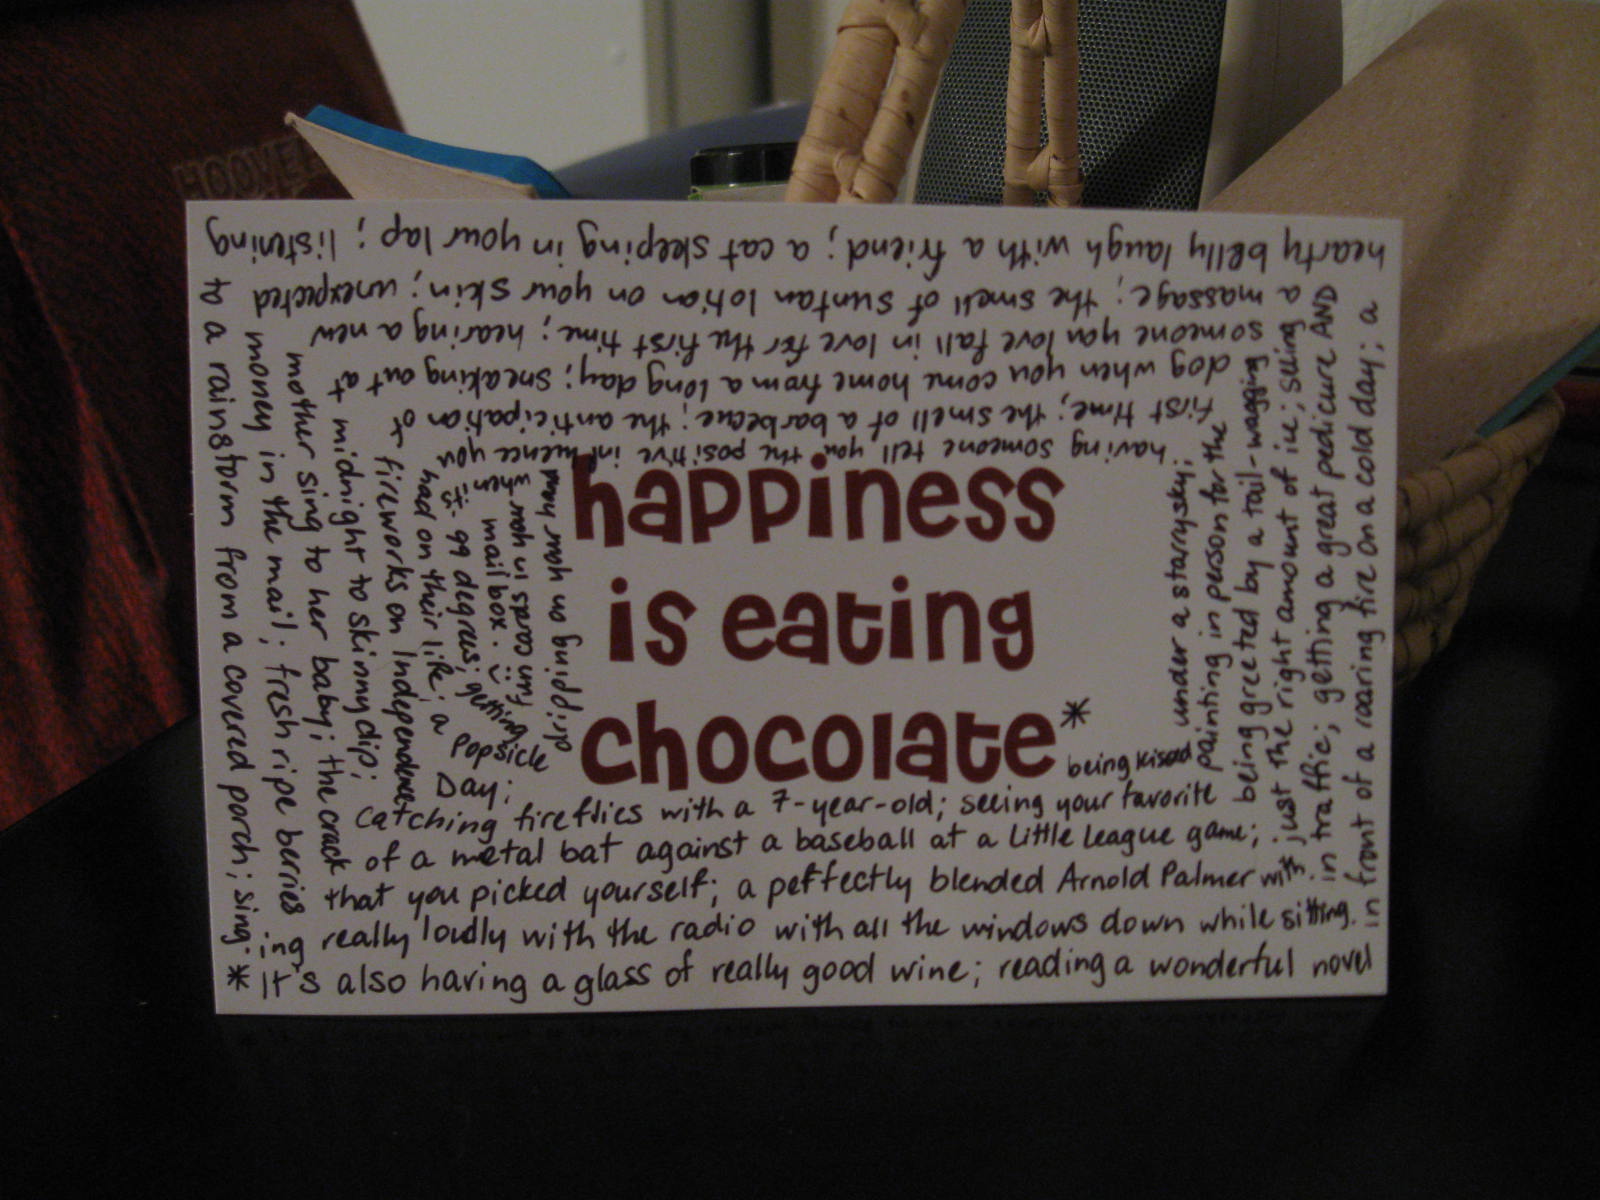 HOOVE
happiness
is eating
chocolate*
* It's also having a glass of really good wine; reading a wonderful novel
in front of a roaring fire on a cold day; a
hearty belly laugh with a friend; a cat sleeping in your lap; listening
to a rainstorm from a covered porch; sing-
ing really loudly with the radio with all the windows down while sitting
in traffic; getting a great pedicure AND
a massage; the smell of suntan lotion on your skin; unexpected
money in the mail; fresh ripe berries
that you picked yourself; a perfectly blended Arnold Palmer with
just the right amount of ice; seeing
someone you love fall in love for the first time; hearing a new
mother sing to her baby; the crack
of a metal bat against a baseball at a Little League game;
being greeted by a tail-wagging
dog when you come home from a long day; sneaking out at
midnight to skinny dip;
catching fireflies with a 7-year-old; seeing your favorite
painting in person for the
first time; the smell of a barbecue; the anticipation of
fireworks on Independence
Day;
being kissed
under a starry sky;
having someone tell you the positive influence you
had on their life; a
popsicle
dripping on your hand
when it's
99 degrees; getting
mail box. :)